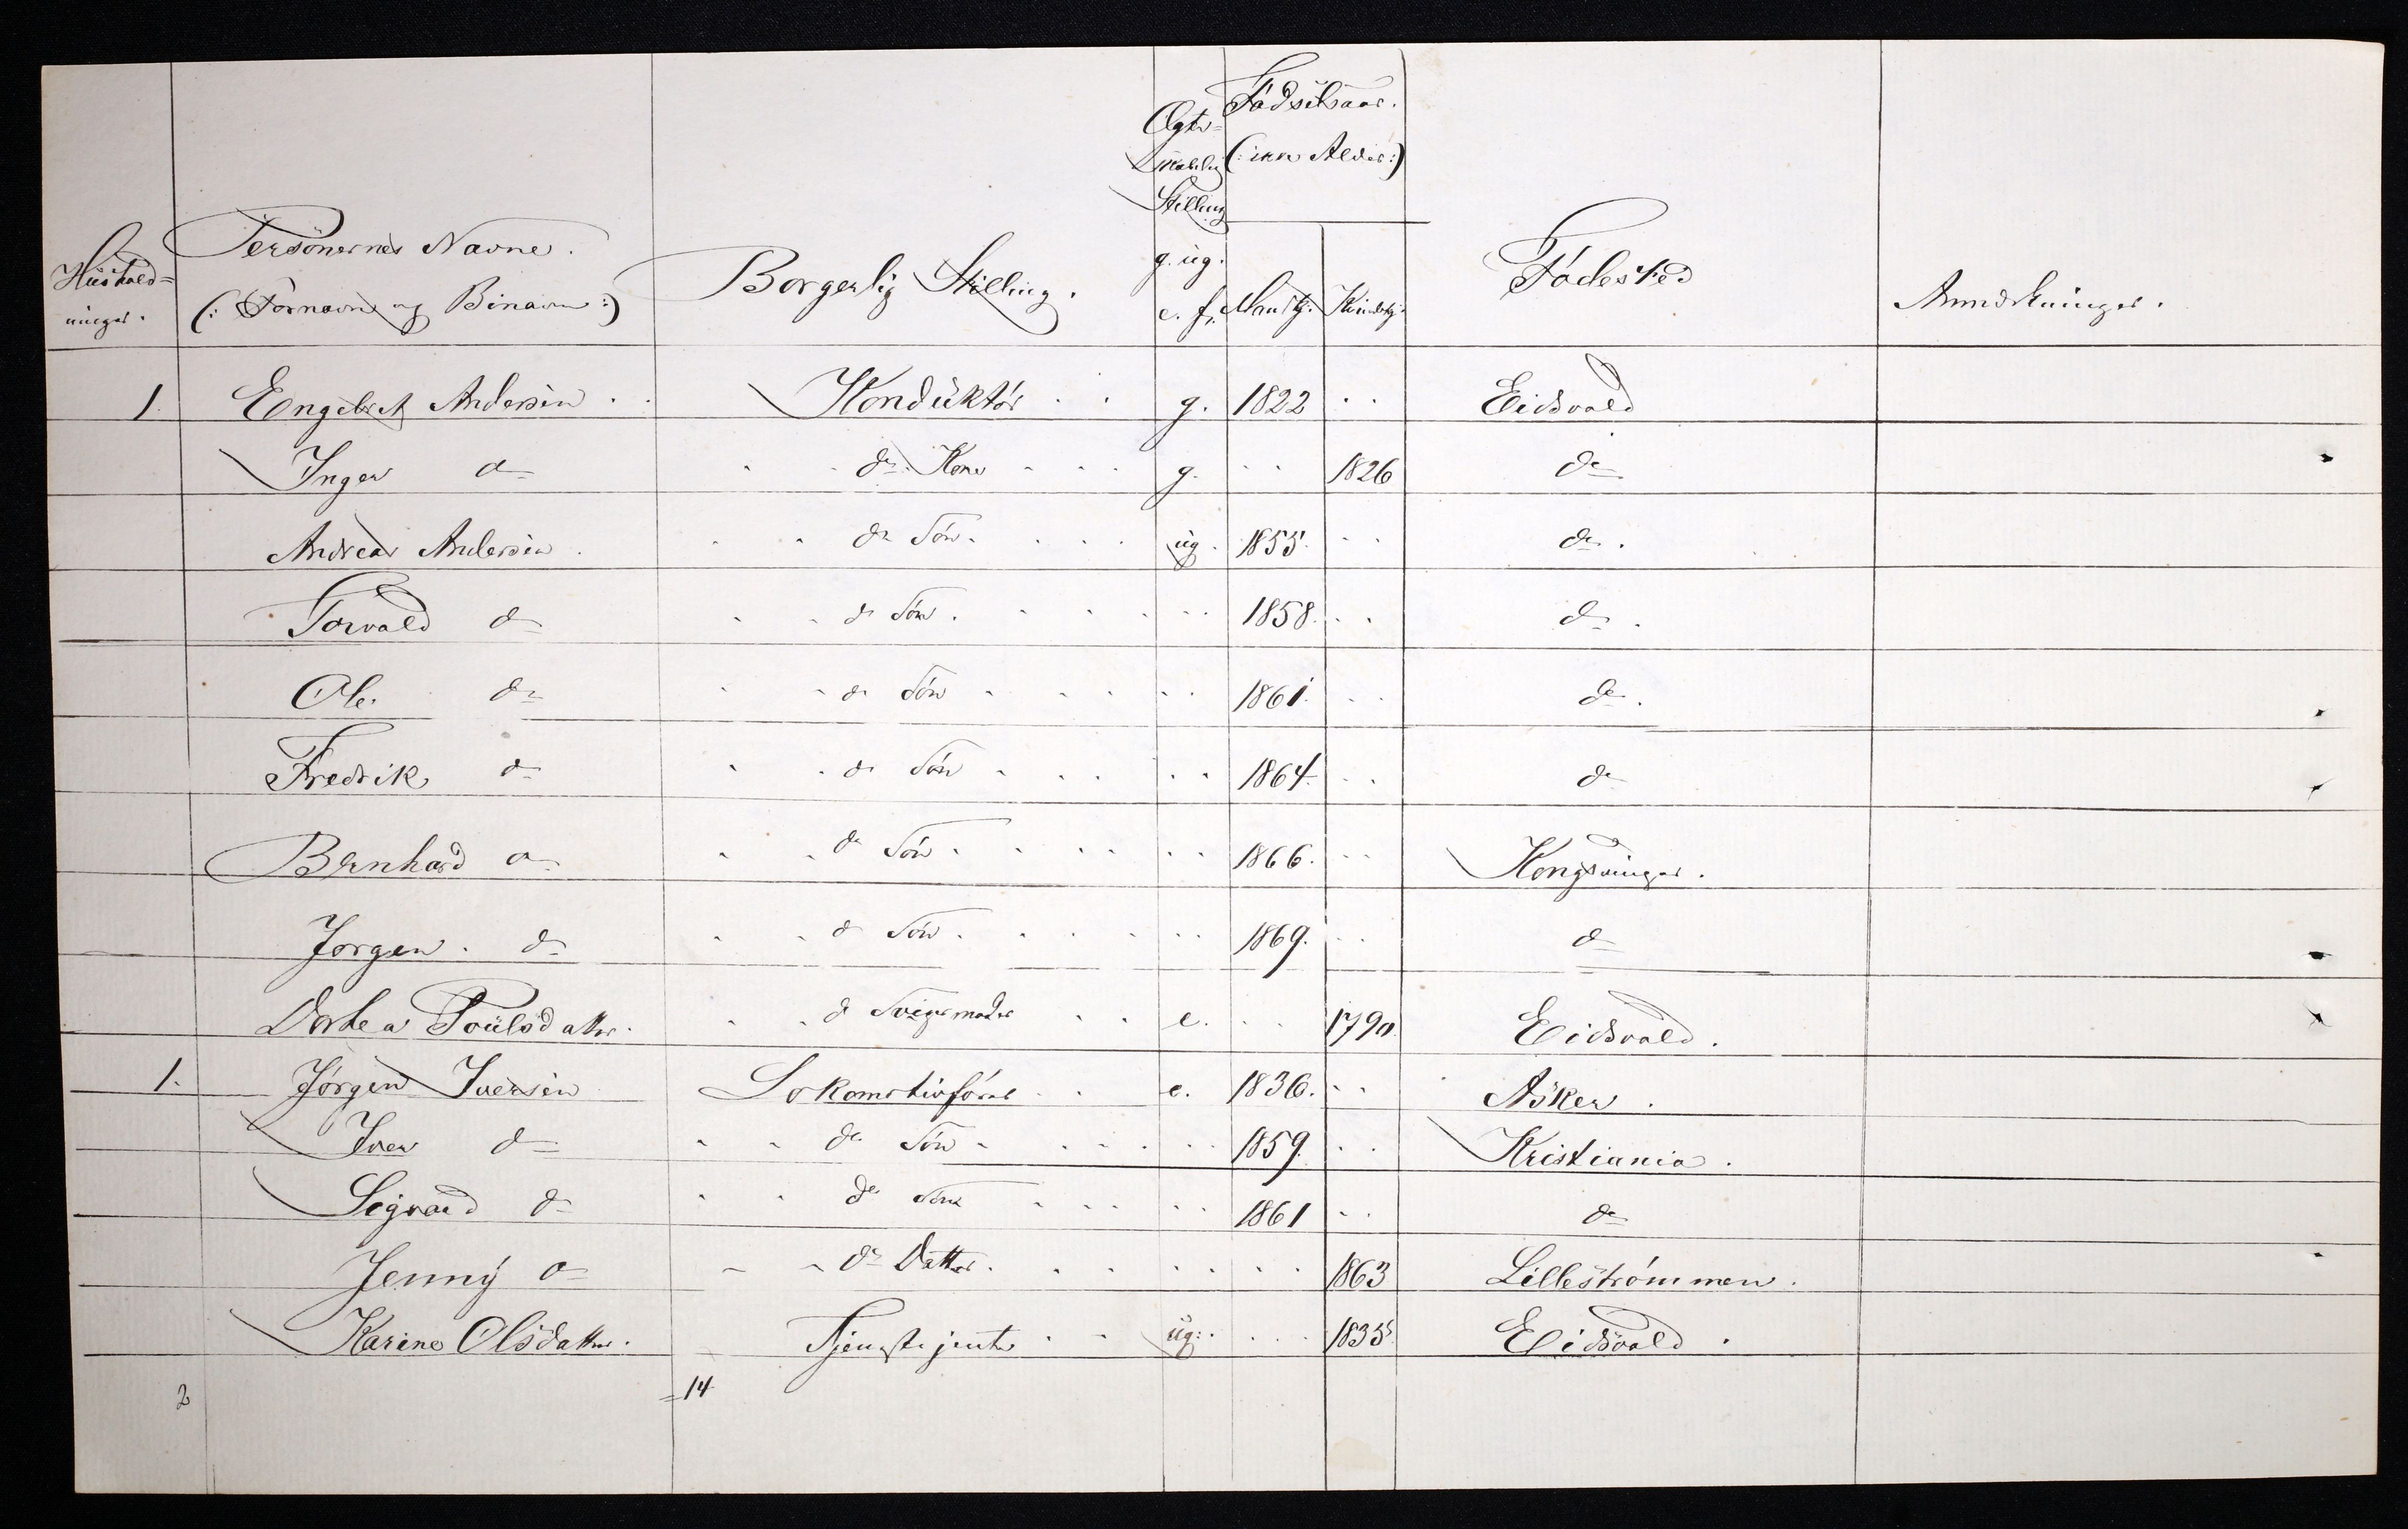 Hüshold=
ninger.
Personernes Navne.
(: Fornavn og Binavn :)
Borgerlig Stilling.
Ægte=
skabelig
Stilling
g. ug.
e. f.
Födselsaar.
(: ikke Alder :)
Mandkj. Kvindekj.
Födested
Anmærkninger.
1. Engebret Andersen . . Kondüktör . . g. 1822 . . Eidsvold
Inger do . . do Kone . . . g. . . 1826 do
Andreas Andersen . . . do Sön . . . . ug. 1855 . . do .
Torvald do . . do Sön . . . . . . 1858. . . do .
Ole. do . . do Sön . . . . . 1861. . . do .
Fredrik do . . do Sön . . . . . 1864. . . do
Bernhard do . . do Sön . . . . . . 1866. . . Kongsvinger.
Jorgen. do . . do Sön . . . . . . 1869. . . do
Dorthea Poülsdatter. . . do Svigermoder . . e. . . 1790. Eidsvold.
1. Jörgen Iversen Lokomotivförer . . e. 1836. . . Asker .
Iver do . . do Sön . . . . . . 1859. . . Kristiania .
Segvard do . . do Sön . . . . . 1861 . . do
Jenny do . . do Datter. . . . . . . . 1863 Lilleströmmen.
Karine Olsdatter. Tjenestejente . . ug. . . . 1835 Eidsvold .
2 =14